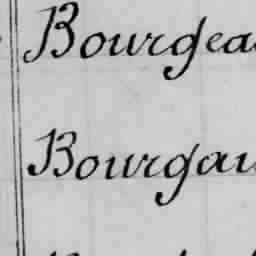 Bourgea
Bourgau